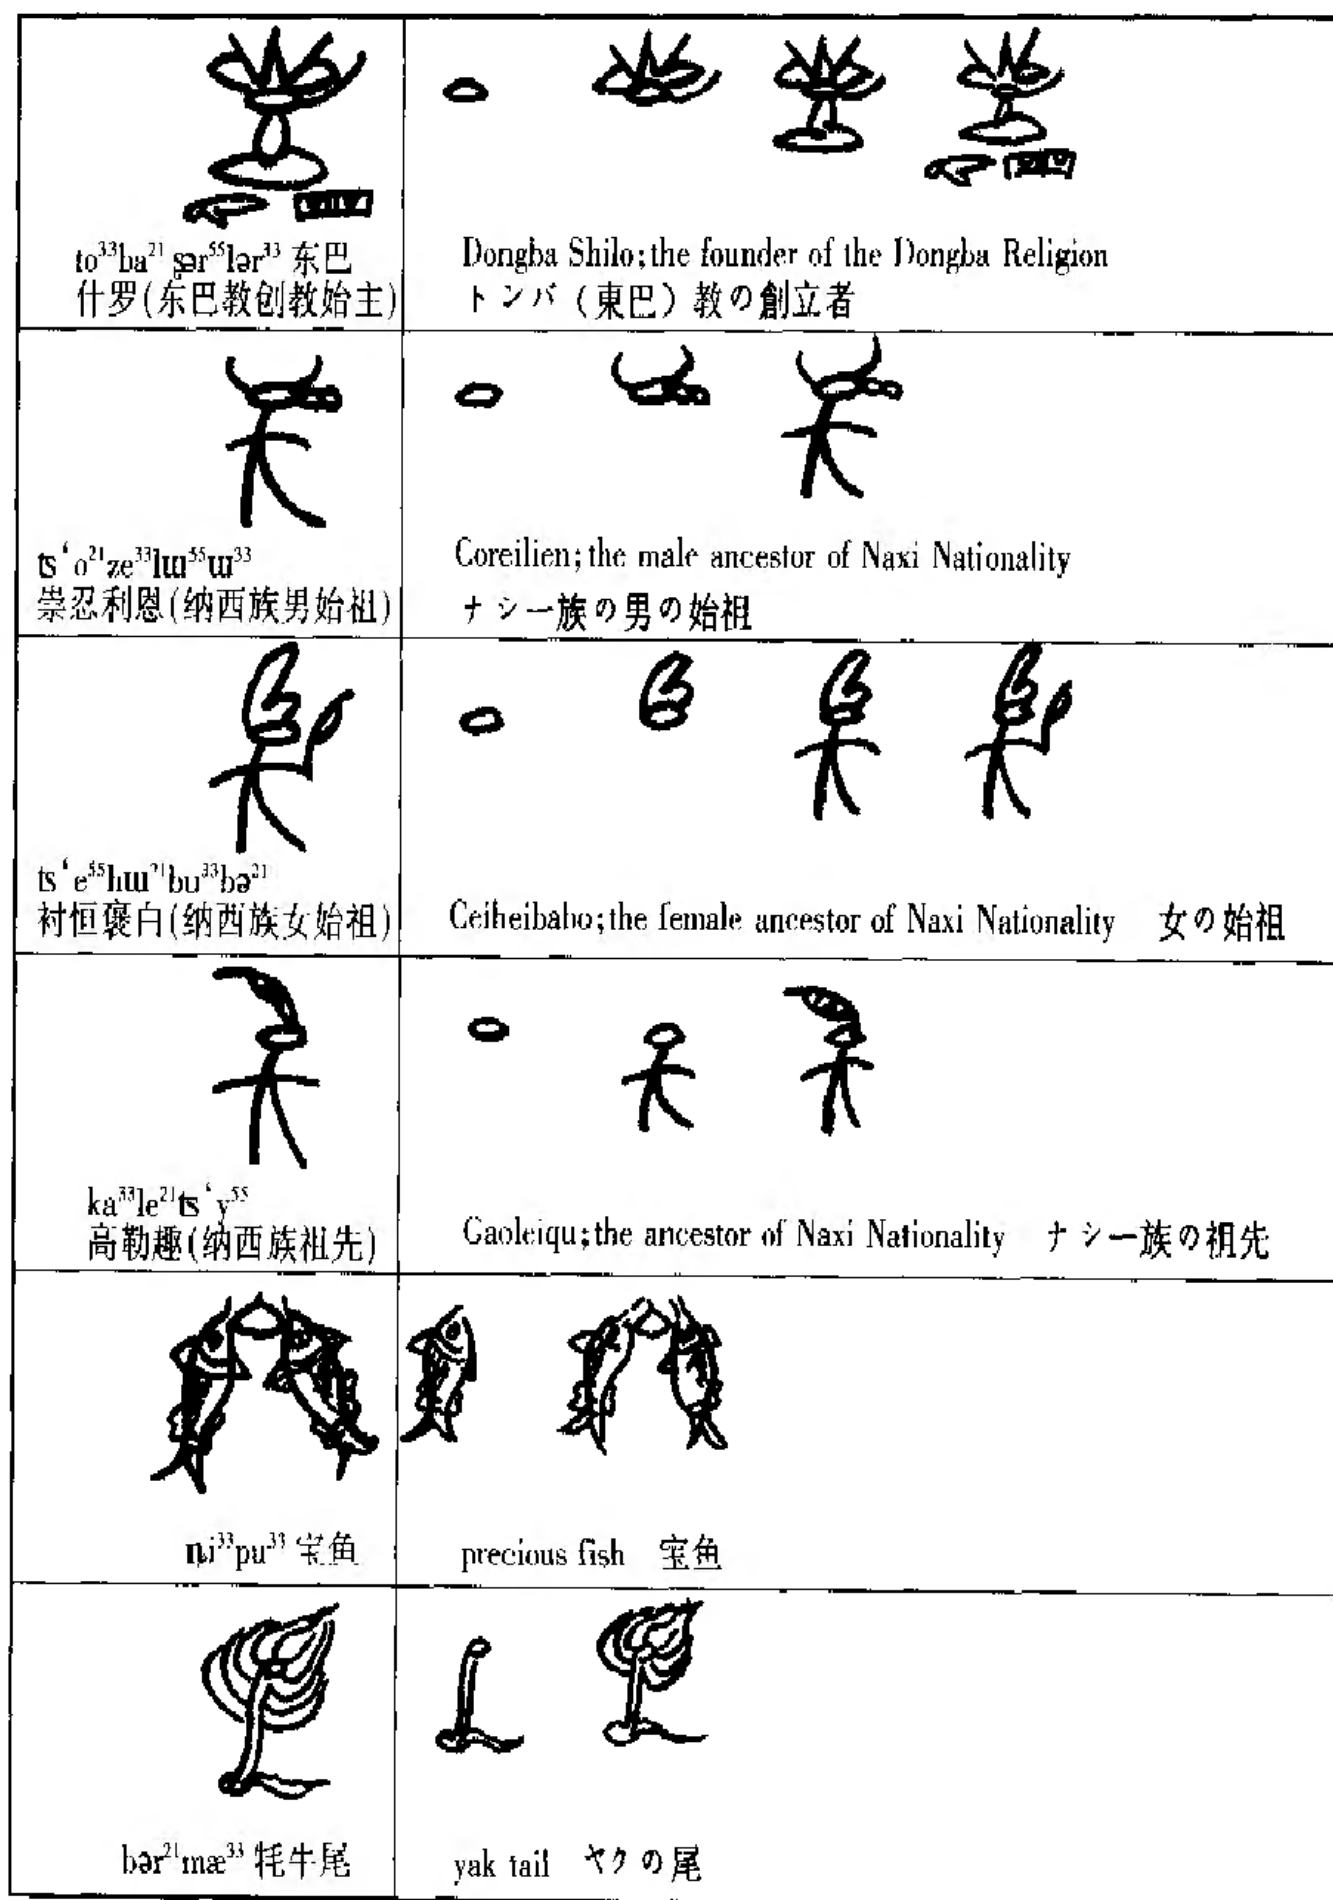 to³³ba²¹ ʂər⁵⁵lər³³ 东巴
什罗(东巴教创教始主)
Dongba Shilo;the founder of the Dongba Religion
トンバ（東巴）教の創立者
ts‘o²¹ze³³lɯ⁵⁵ɯ³³
崇忍利恩(纳西族男始祖)
Coreilien;the male ancestor of Naxi Nationality
ナシー族の男の始祖
ts‘e⁵⁵hɯ²¹bu³³bə²¹
衬恒褒白(纳西族女始祖)
Ceiheibabo;the female ancestor of Naxi Nationality 女の始祖
ka³³le²¹ts‘y⁵⁵
高勒趣(纳西族祖先)
Gaoleiqu;the ancestor of Naxi Nationality ナシー族の祖先
ȵi³³pu³³ 宝鱼
precious fish 宝鱼
bər²¹mæ³³ 牦牛尾
yak tail ヤクの尾